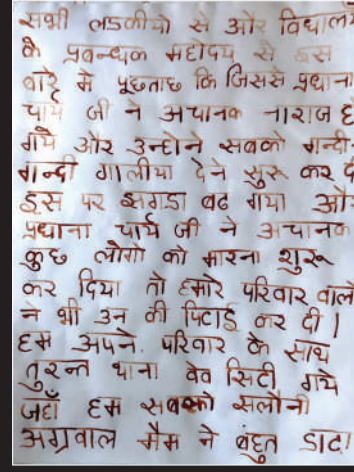 सभी लडकीयो से और विधाल
के प्रबन्धक महोदय से इस
बारे मे पूछताछ कि जिससे प्रधाना
चार्य जी ने अचानक नाराज ह
गये और उन्होने सबको गन्दी-
गन्दी गालीया देने सुरू कर द
इस पर झगडा बढ गया औ
प्रधाना चार्य जी ने अचानक
कुछ लोगो को मारना शुरू
कर दिया तो हमारे परिवार वाल
ने भी उन की पिटाई कर दी।
हम अपने. परिवार के साथ
तुरन्त थाना वेव सिटी गये
जहाँ हम सबको सलोनी
अग्रवाल मैम ने बहुत डाटा